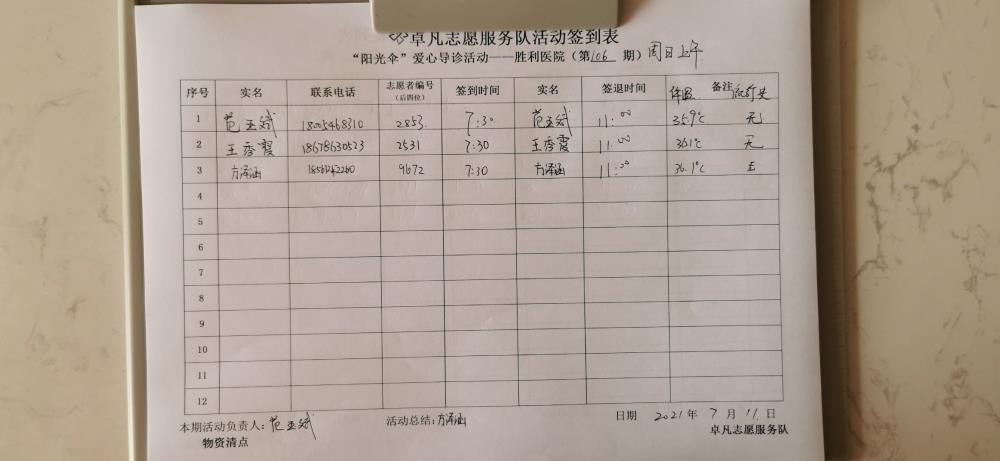 卓凡志愿服务队活动签到表
“阳光伞”爱心导诊活动——胜利医院（第106期）周日上午
序号 实名 联系电话 志愿者编号（后四位） 签到时间 实名 签退时间 体温 备注
1 范玉斌 18005468310 2853 7:30 范玉斌 11:00 35.9℃ 无
2 王秀霞 18678630523 2531 7:30 王秀霞 11:00 36.1℃ 无
3 方泽涵 9672 7:30 方泽涵 11:00 36.1℃ 无
4
5
6
7
8
9
10
11
12
本期活动负责人：范玉斌 活动总结：方泽涵 日期 2021年7月11日
物资清点 卓凡志愿服务队